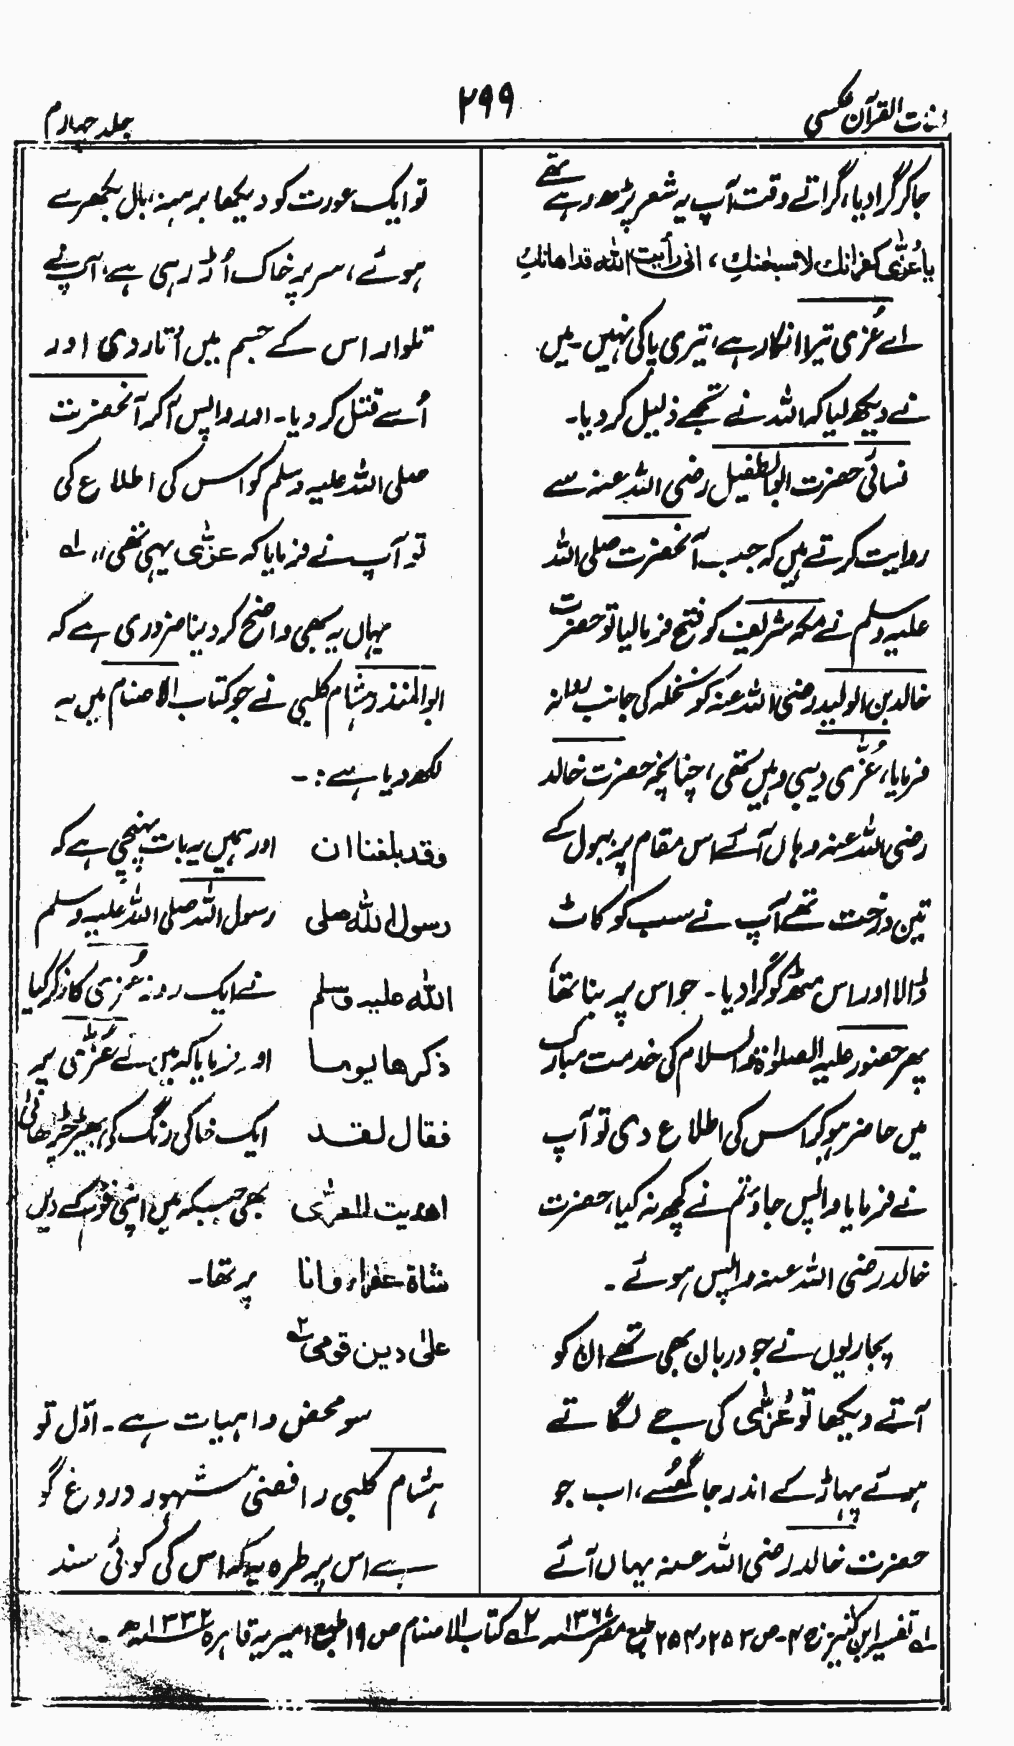 لغات القرآن عکسی
۲۹۹
جلد چہارم
جا کر گرا دیا، گراتے وقت آپ یہ شعر پڑھ رہے تھے
یا عُزّٰی کفرانک لا سبحٰنکِ ، انی رأیت اللہ قد اھانکِ
اے عُزی تیرا انکار ہے، تیری پاکی نہیں۔ میں
نے دیکھ لیا کہ اللہ نے تجھے ذلیل کر دیا۔
نسائی حضرت ابوالطفیل رضی اللہ عنہ سے
روایت کرتے ہیں کہ جب آنحضرت صلی اللہ
علیہ وسلم نے مکہ شریف کو فتح فرما لیا تو حضرت
خالد بن الولید رضی اللہ عنہ کو نخلہ کی جانب روانہ
فرمایا، عُزّٰی دیبی وہیں تھی، چنانچہ حضرت خالد
رضی اللہ عنہ وہاں آئے اس مقام پر ببول کے
تین درخت تھے آپ نے سب کو کاٹ
ڈالا اور اس مٹھ کو گرا دیا۔ جو اس پر بنا تھا
پھر حضور علیہ الصلوٰۃ والسلام کی خدمت مبارک
میں حاضر ہو کر اس کی اطلاع دی تو آپ
نے فرمایا واپس جاؤ تم نے کچھ نہ کیا، حضرت
خالد رضی اللہ عنہ واپس ہوئے۔
پجاریوں نے جو دربان بھی تھے ان کو
آتے دیکھا تو عُزّٰی کی جے لگاتے
ہوئے پہاڑ کے اندر جا گھُسے، اب جو
حضرت خالد رضی اللہ عنہ یہاں آئے
تو ایک عورت کو دیکھا برہنہ، بال بکھرے
ہوئے، سر پر خاک اُڑ رہی ہے، آپ نے
تلوار اس کے جسم میں اُتار دی اور
اُسے قتل کر دیا۔ اور واپس آ کر آنحضرت
صلی اللہ علیہ وسلم کو اس کی اطلاع کی
تو آپ نے فرمایا کہ عزّٰی یہی تھی،، لہ
یہاں یہ بھی واضح کر دینا ضروری ہے کہ
ابوالمنذر ہشام کلبی نے جو کتاب الاصنام میں یہ
لکھ دیا ہے:۔
وقد بلغنا ان اور ہمیں یہ بات پہنچی ہے کہ
رسول اللہ صلی رسول اللہ صلی اللہ علیہ وسلم
اللہ علیہ وسلم نے ایک روز عُزی کا ذکر کیا
ذکرھا یوما اور فرمایا کہ میں نے عُزّٰی پر
فقال لقد ایک خاکی رنگ کی بھیڑ چڑھائی
اھدیت للعزّٰی تھی جبکہ میں اپنی قوم کے دین
شاۃ عفراء وانا پر تھا۔
علیٰ دین قومی ۲ہ
سو محض واہیات ہے۔ اوّل تو
ہشام کلبی رافضی مشہور دروغ گو
ہے اس پر طرہ یہ کہ اس کی کوئی سند
لہ تفسیر ابن کثیر ج ۴۔ ص ۲۵۳ و ۲۵۴ طبع مصر ۲ہ کتاب الاصنام ص ۱۹ طبع امیریہ قاہرہ ۱۳۳۲ھ۔